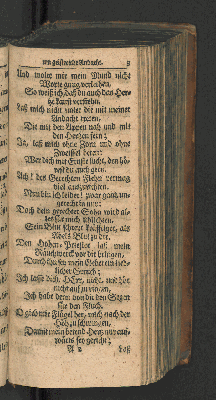 um geistreiche Andacht. 3
Und wolet mir mein Mund nicht
Worte gnug verleihen,
So weiß ich, daß du auch das Her-
tze kanst verstehn,
Laß mich nicht wider die mit meiner
Andacht treten,
Die mit den Lippen nah und mit
dem Hertzen fern;
Ja, laß mich ohne Zorn und ohne
Zweiffel beten:
Wer dich mit Ernste sucht, den hö-
rest du auch gern.
Ach! des Gerechten Flehn vermag
viel auszurichten,
Nun bin ich leider! zwar gantz un-
gerecht in mir;
Doch dein gerechter Sohn wird al-
les für mich schlichten,
Sein Blut schreyt kräfftiger, als
Abels Blut zu dir.
Den Hohen-Priester laß mein
Rauchwerck vor dir bringen,
Durch ihn sey mein Gebet ein süs-
ser Geruch;
Ich lasse dich, HErr, nicht, und hör
nicht auf zu ringen,
Ich habe denn von dir den Segen
für den Fluch.
O gieb mir Flügel her, mich nach der
Höh zu schwingen,
Damit mein betend Hertz nur auf-
wärts sey gericht;
A 2 Laß